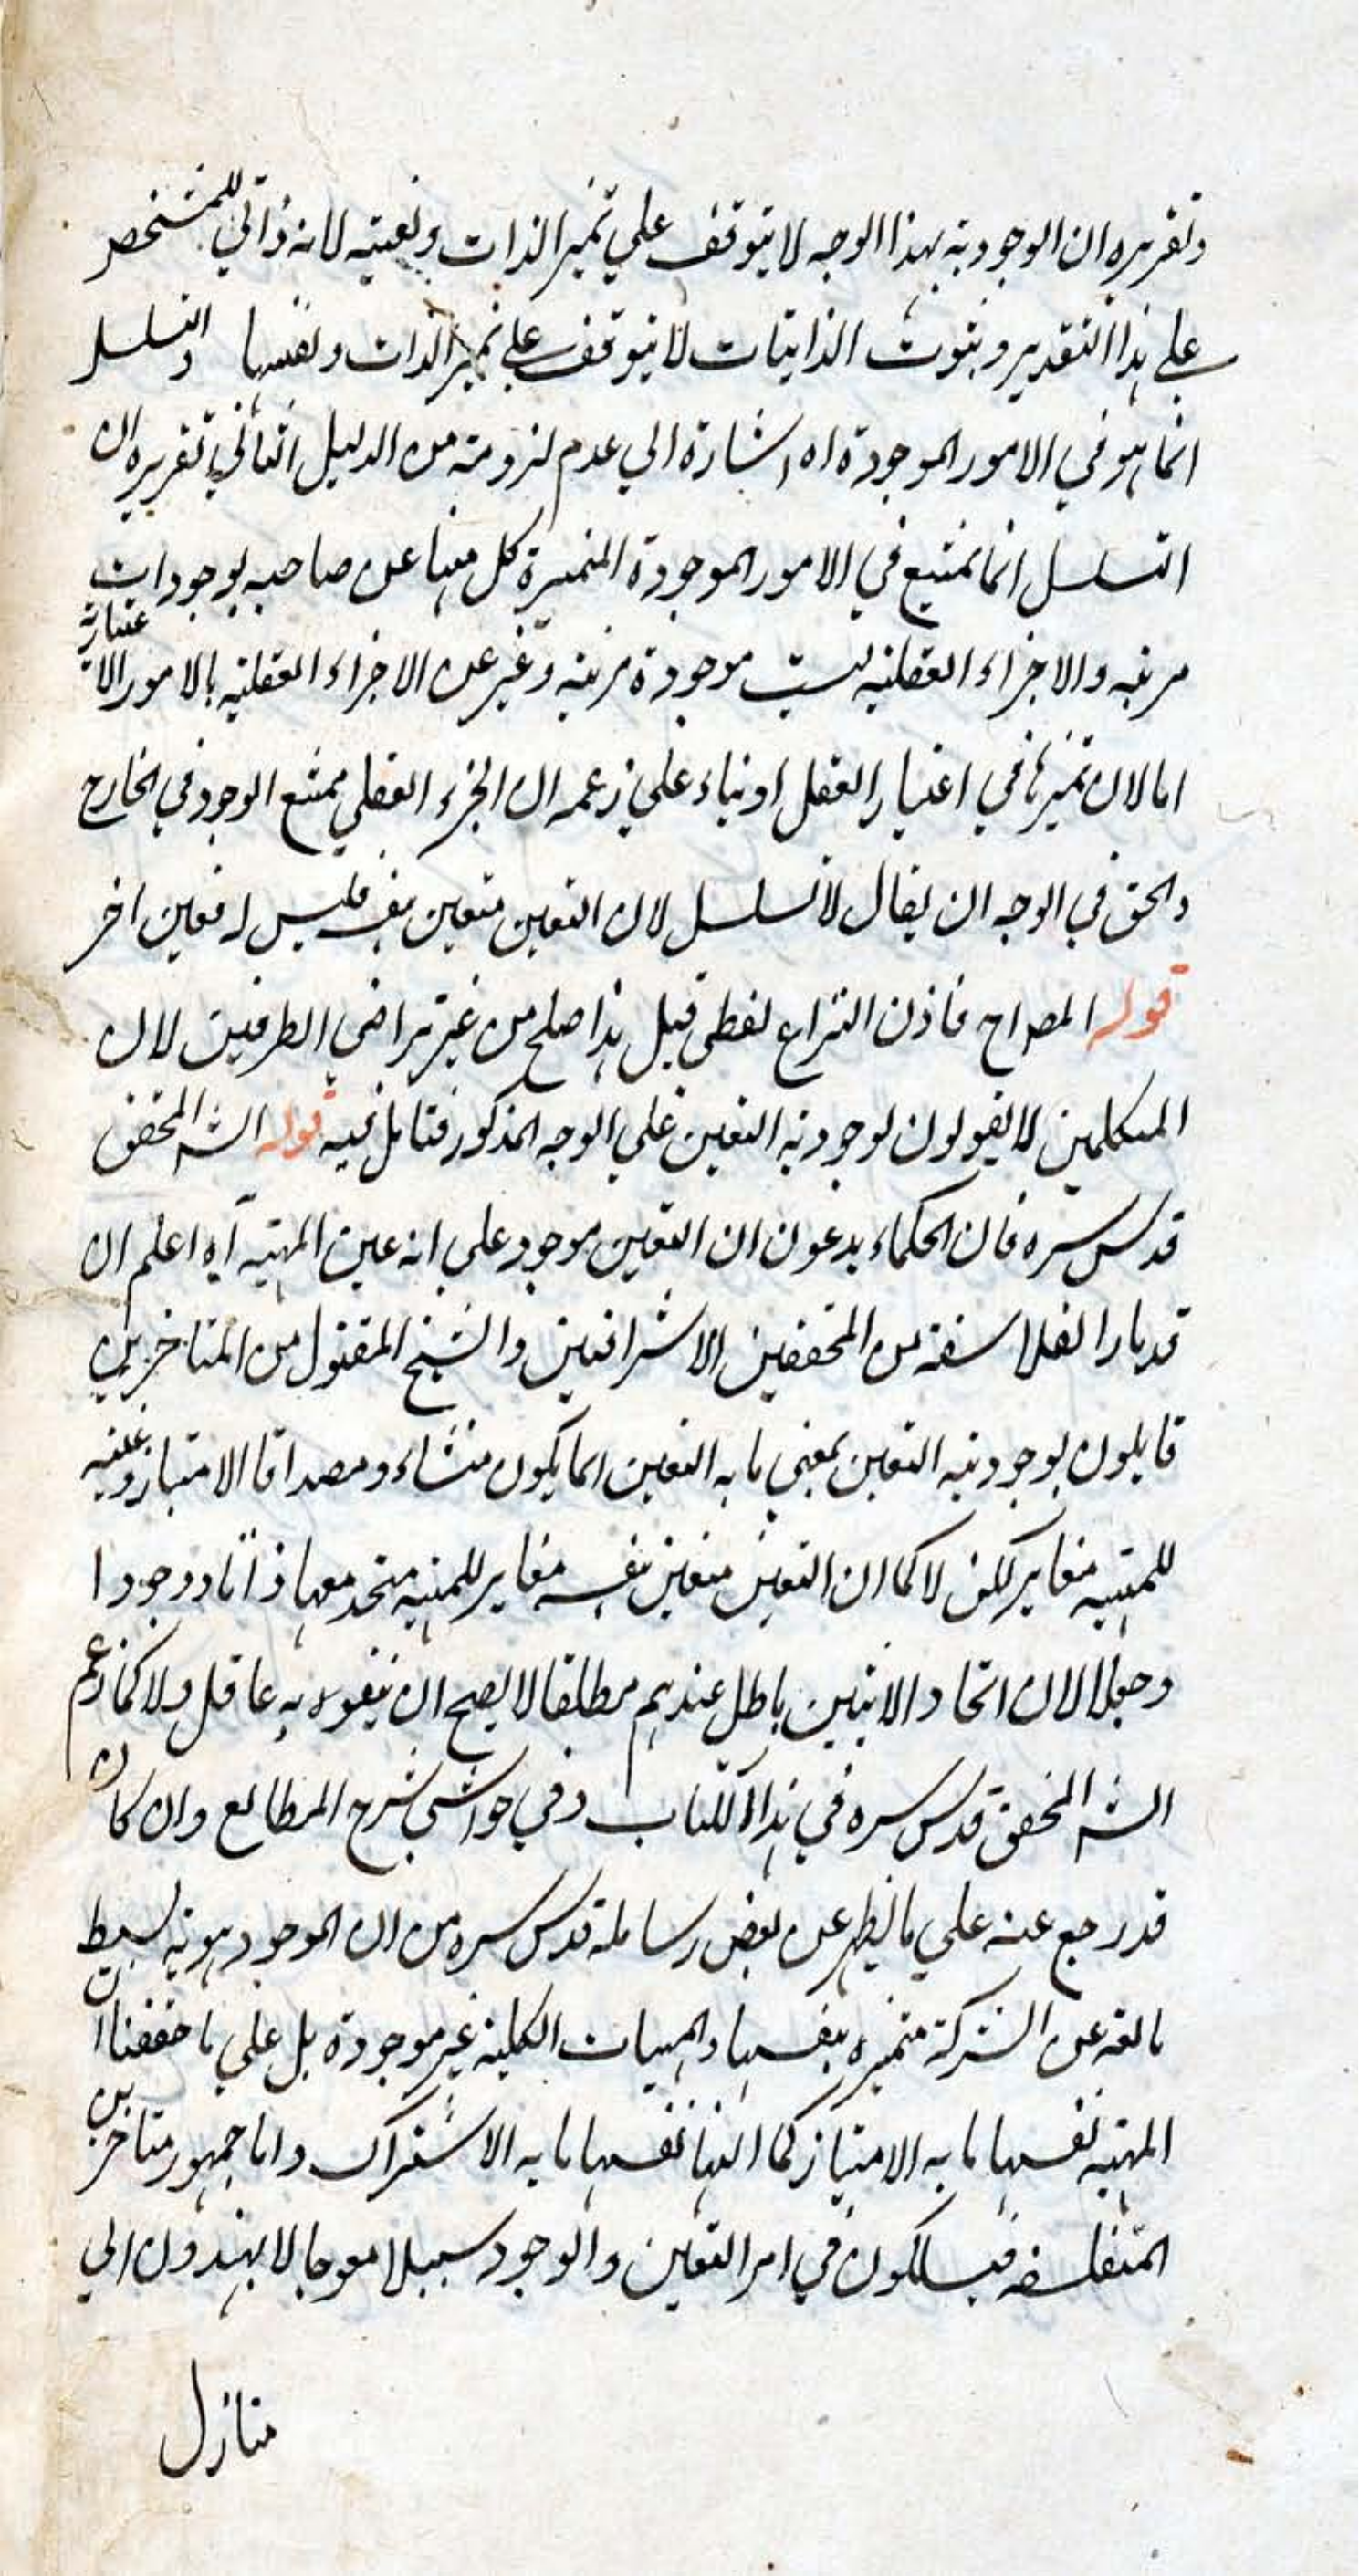 وتقريره ان الوجودية بهذا الوجه لا يتوقف على تميز الذات وتعينه لانه ذاتي للمتشخص
على هذا التقدير وثبوت الذاتيات لا يتوقف على تميز الذات ونفسها والتسلسل
انما هو في الامور الموجودة اه اشارة الي عدم لزومته من الدليل الثاني تقريره ان
التسلسل انما يمتنع في الامور الموجودة المتميزة كل منها عن صاحبه بوجودات
مرتبه والاجزاء العقلية ليست موجودة مرتبه وعبر عن الاجزاء العقليه بالامور الاعتبارية
اما لان تميزها في اعتبار العقل او بناء على زعمه ان الجزء العقلي ممتنع الوجود في الخارج
والحق في الوجه ان يقال لا تسلسل لان التعين متعين بنفسه فليس له تعين اخر
قوله المصراح فاذن النزاع لفظي قيل هذا صلح من غير تراضى الطرفين لان
المتكلمين لا يقولون لوجودية التعين على الوجه المذكور فتامل فيه قوله الشه المحقق
قدس سره فان الحكماء يدعون ان التعين موجود على انه عين المهية اه اعلم ان
قدماء الفلاسفة من المحققين الاشراقيين والشيخ المقتول من المتاخرين
قايلون بوجودية التعين بمعنى ما به التعين اى ما يكون منشاء ومصداقا الامتياز وعينيه
للمهية مغاير لكن لا كما ان التعين متعين بنفسه مغاير للمهية متحد معها ذاتا ووجودا
وجعلا لان اتحاد الاثنين باطل عندهم مطلقا لا يصح ان يتفوه به عاقل ولا كما زعم
الشه المحقق قدس سره في هذا الكتاب وفي حواشى شرح المطالع وان كان
قد رجع عنه على ما يظهر عن بعض رسائله قدس سره من ان الموجود هوية بسيط
مانعه عن الشركة متميزه بنفسها والمهيات الكلية غير موجودة بل على ما حققنا ان
المهية نفسها ما به الامتياز كما انها نفسها ما به الاشتراك واما جمهور متاخرين
المتفلسفه فيسلكون في امر التعين والوجود سبيلا معوجا لا يهتدون الى
منازل